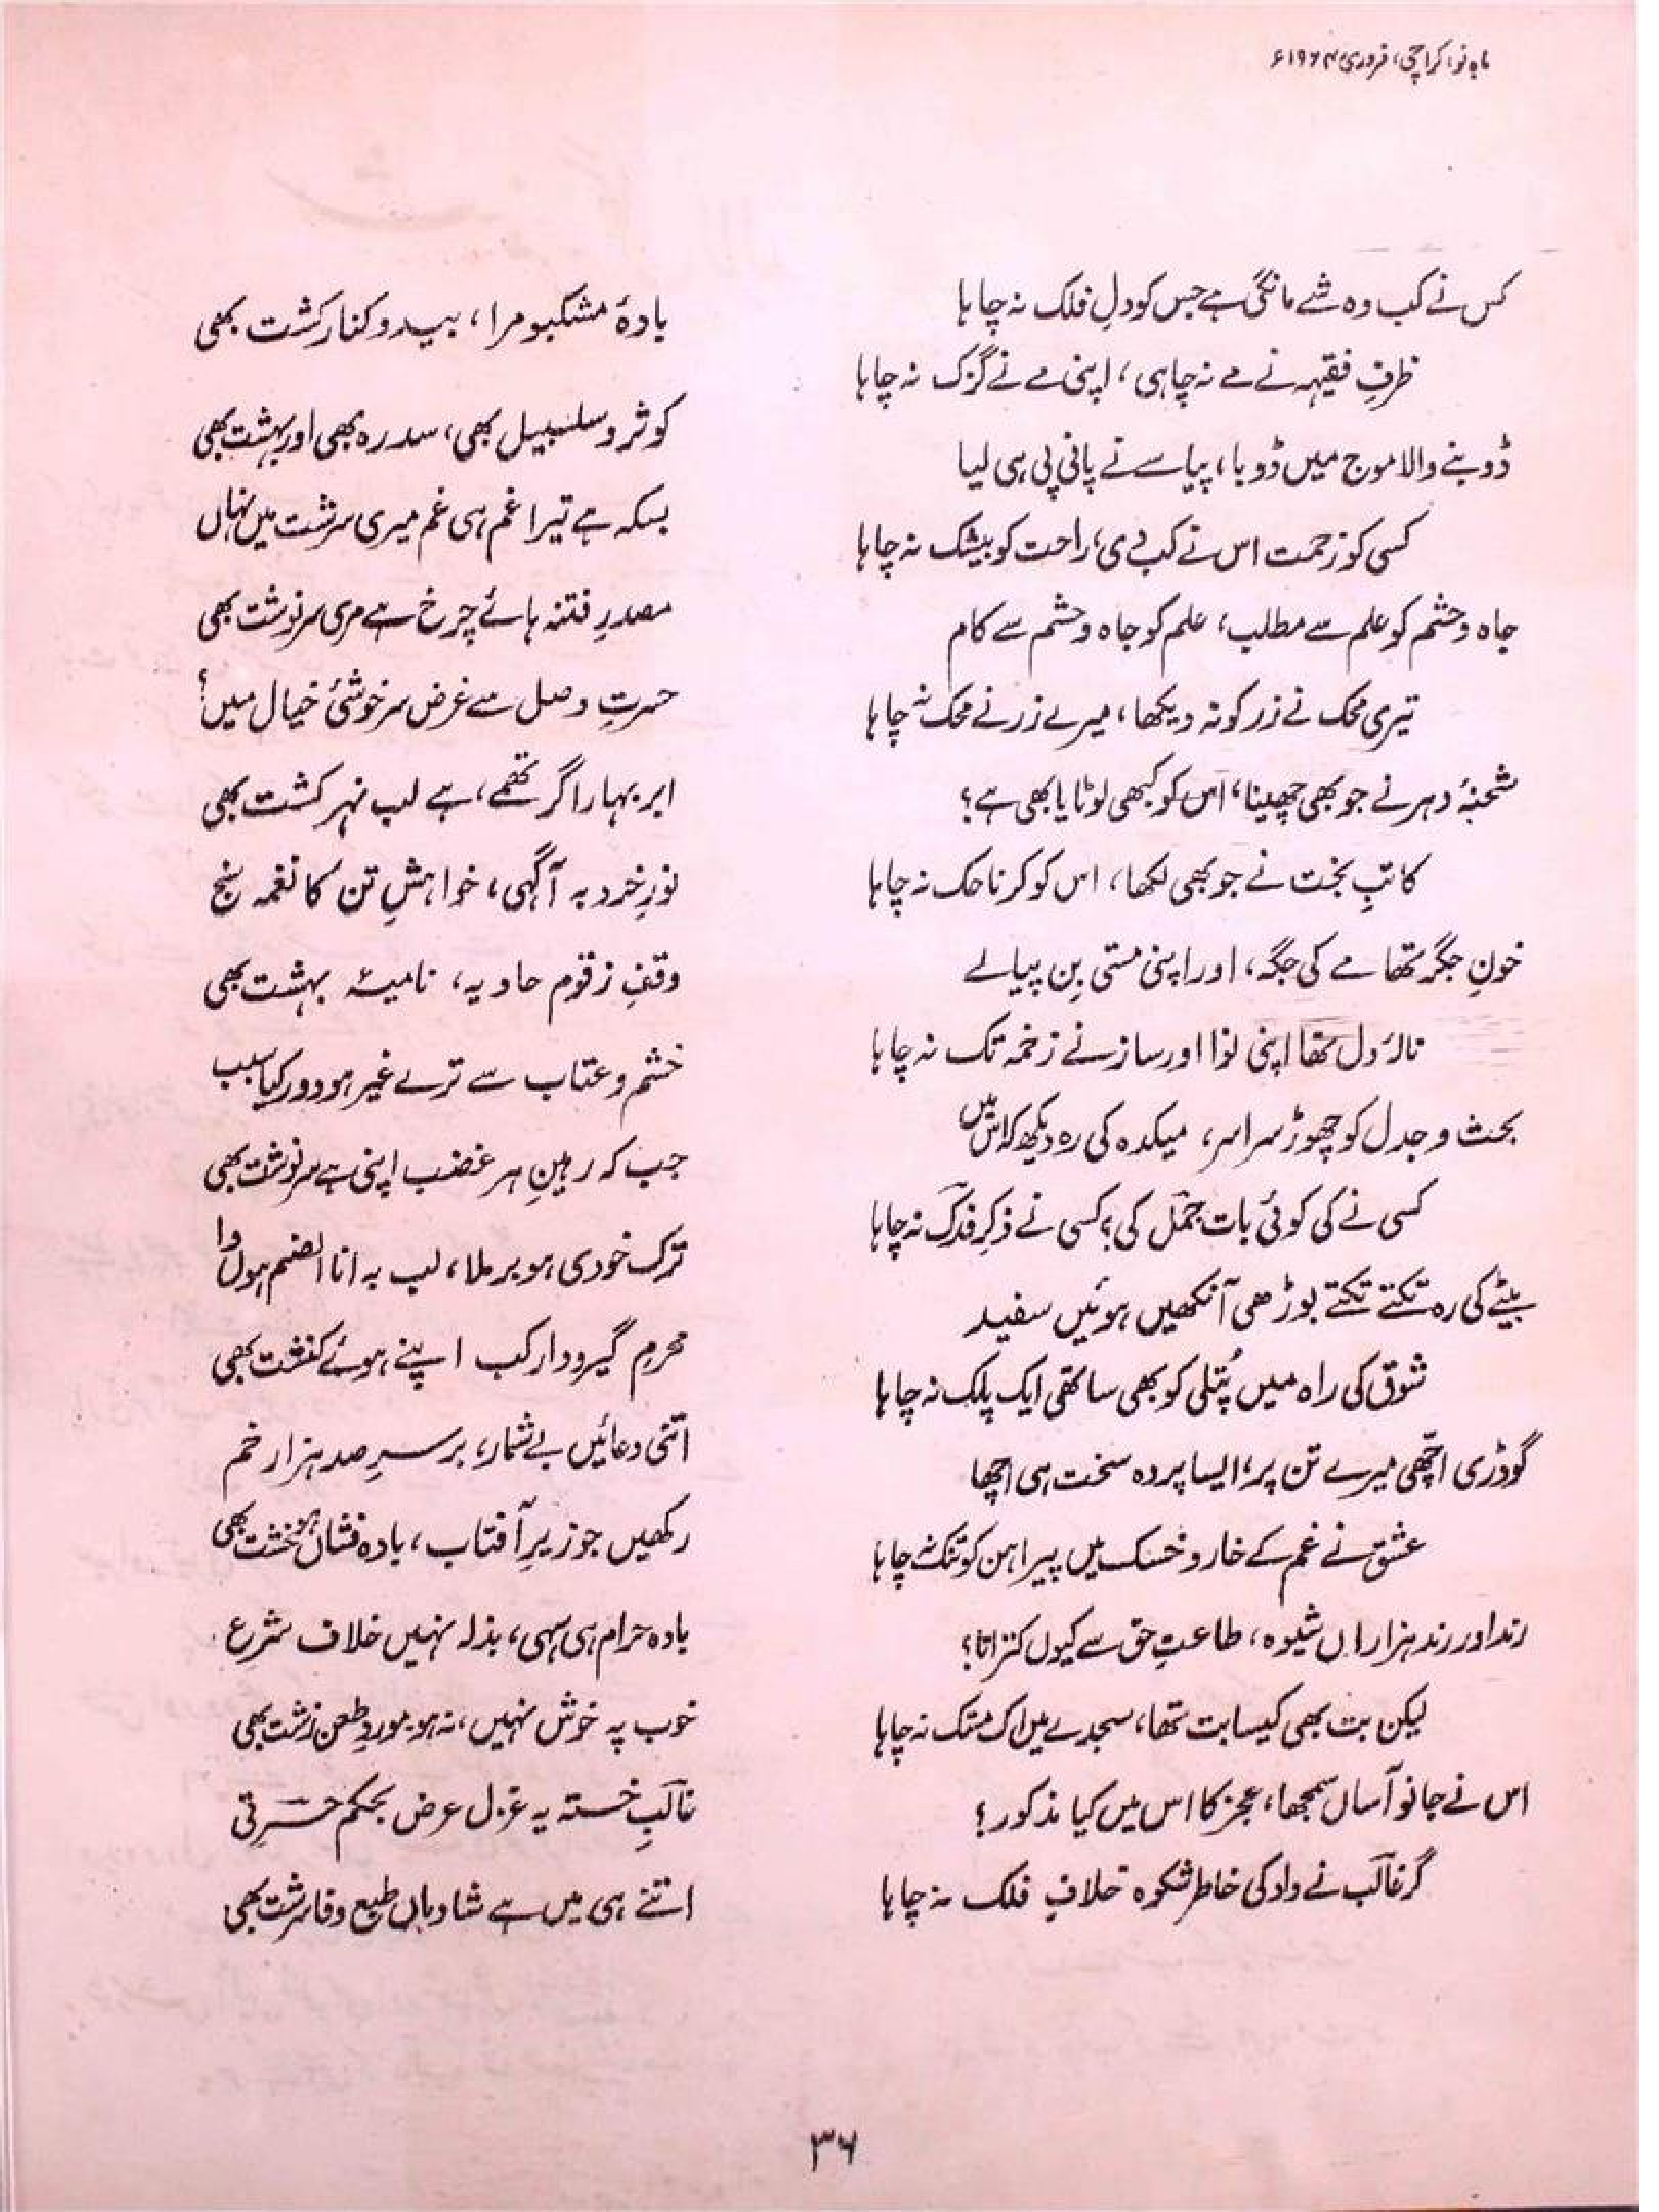 ماہ نو، کراچی، فروری ۱۹۶۴ء
کس نے کب وہ شے مانگی ہے جس کو دلِ فلک نہ چاہا
ظرفِ فقیہہ نے مے نہ چاہی، اپنی مے نے گزک نہ چاہا
ڈوبنے والا موج میں ڈوبا، پیاسے نے پانی پی ہی لیا
کسی کو زحمت اس نے کب دی، راحت کو بیشک نہ چاہا
جاہ و حشم کو علم سے مطلب، علم کو جاہ و حشم سے کام
تیری محک نے زر کو نہ دیکھا، میرے زر نے محک نہ چاہا
شحنۂ دہر نے جو بھی چھینا، اس کو کبھی لوٹایا بھی ہے؟
کاتبِ بخت نے جو بھی لکھا، اس کو کرنا حک نہ چاہا
خونِ جگر تھا مے کی جگہ، اور اپنی مستی بِن پیالے
نالۂ دل تھا اپنی نوا اور ساز نے زخمہ تک نہ چاہا
بحث و جدل کو چھوڑ سراسر، میکدہ کی رہ دیکھ کہ اس میں
کسی نے کی کوئی بات جمل کی؟ کسی نے ذکرِ فدک نہ چاہا
بیٹے کی رہ تکتے تکتے بوڑھی آنکھیں ہوئیں سفید
شوق کی راہ میں پُتلی کو بھی ساتھی ایک پلک نہ چاہا
گوڈری اچھی میرے تن پر، ایسا پردہ سخت ہی اچھا
عشق نے غم کے خار و خسک میں پیراہن کو تنک نہ چاہا
رند اور رند ہزاراں شیوہ، طاعتِ حق سے کیوں کتراتا؟
لیکن بت بھی کیسا بت تھا، سجدے میں اک متک نہ چاہا
اس نے جانو آساں سمجھا، عجز کا اس میں کیا مذکور؟
گر غالب نے داد کی خاطر شکوہ خلافِ فلک نہ چاہا
بادۂ مشکبو مرا، بید و کنار کشت بھی
کوثر و سلسبیل بھی، سدرہ بھی اور بہشت بھی
بسکہ ہے تیرا غم ہی غم میری سرشت میں نہاں
مصدرِ فتنہ ہائے چرخ ہے مری سرنوشت بھی
حسرتِ وصل سے غرض سرخوشیٔ خیال میں؟
ابر بہار اگر تھمے، ہے لب نہر کشت بھی
نورِ خرد بہ آگہی، خواہشِ تن کا نغمہ سنج
وقفِ زقوم حادیہ، نامیۂ بہشت بھی
خشم و عتاب سے ترے غیر ہو دور کیا سبب
جب کہ رہینِ ہر غضب اپنی ہے سرنوشت بھی
ترک خودی ہو برملا، لب بہ انا الصنم ہوں وا
محرمِ گیرودار کب اپنے ہوئے کنشت بھی
اتنی دعائیں بے شمار، بر سرِ صد ہزار خم
رکھیں جو زیرِ آفتاب، بادہ فشاں ہو خشت بھی
بادہ حرام ہی سہی، بذلہ نہیں خلاف شرع
خوب پہ خوش نہیں، نہ ہو موردِ طعن زشت بھی
غالبِ خستہ یہ غزل عرض بحکم حسرتی
اتنے ہی میں ہے شادیاں طبع وفا سرشت بھی
۳۶